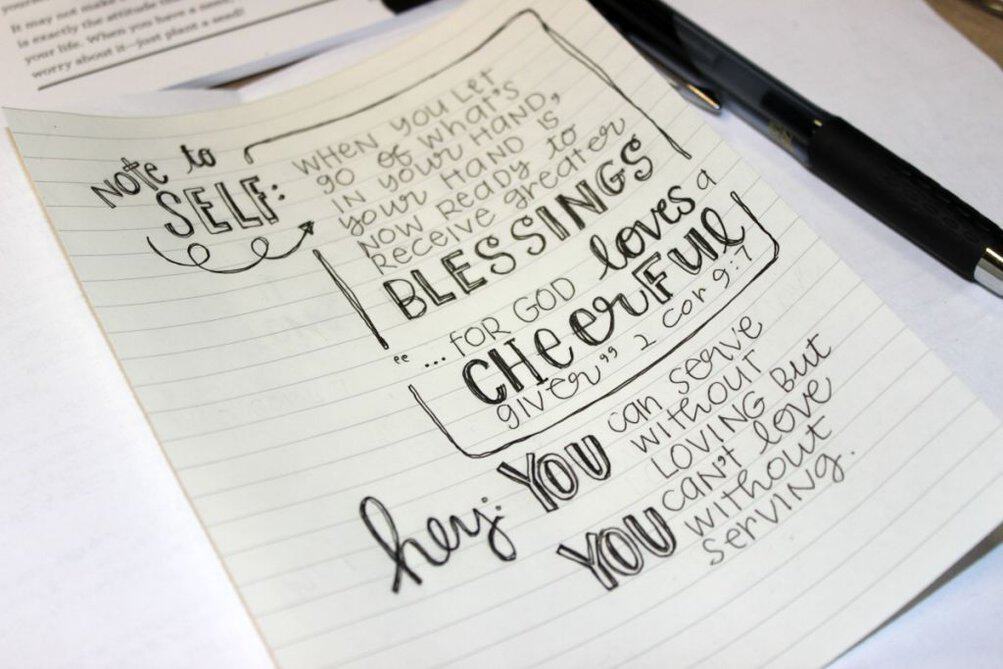 It may not make
is exactly the attitude th
your life. When you have a need,
worry about it—just plant a seed!
Note to
SELF:
WHEN YOU LET
go of WHAT'S
IN YOUR HAND,
your HAND IS
NOW READY to
RECEIVE greater
BLESSINGS
"... FOR GOD loves a
CHeerFUL
giver" 2 cor 9:7
hey: YOU can serve
WITHOUT
LOVING BUT
YOU can't love
without
serving.